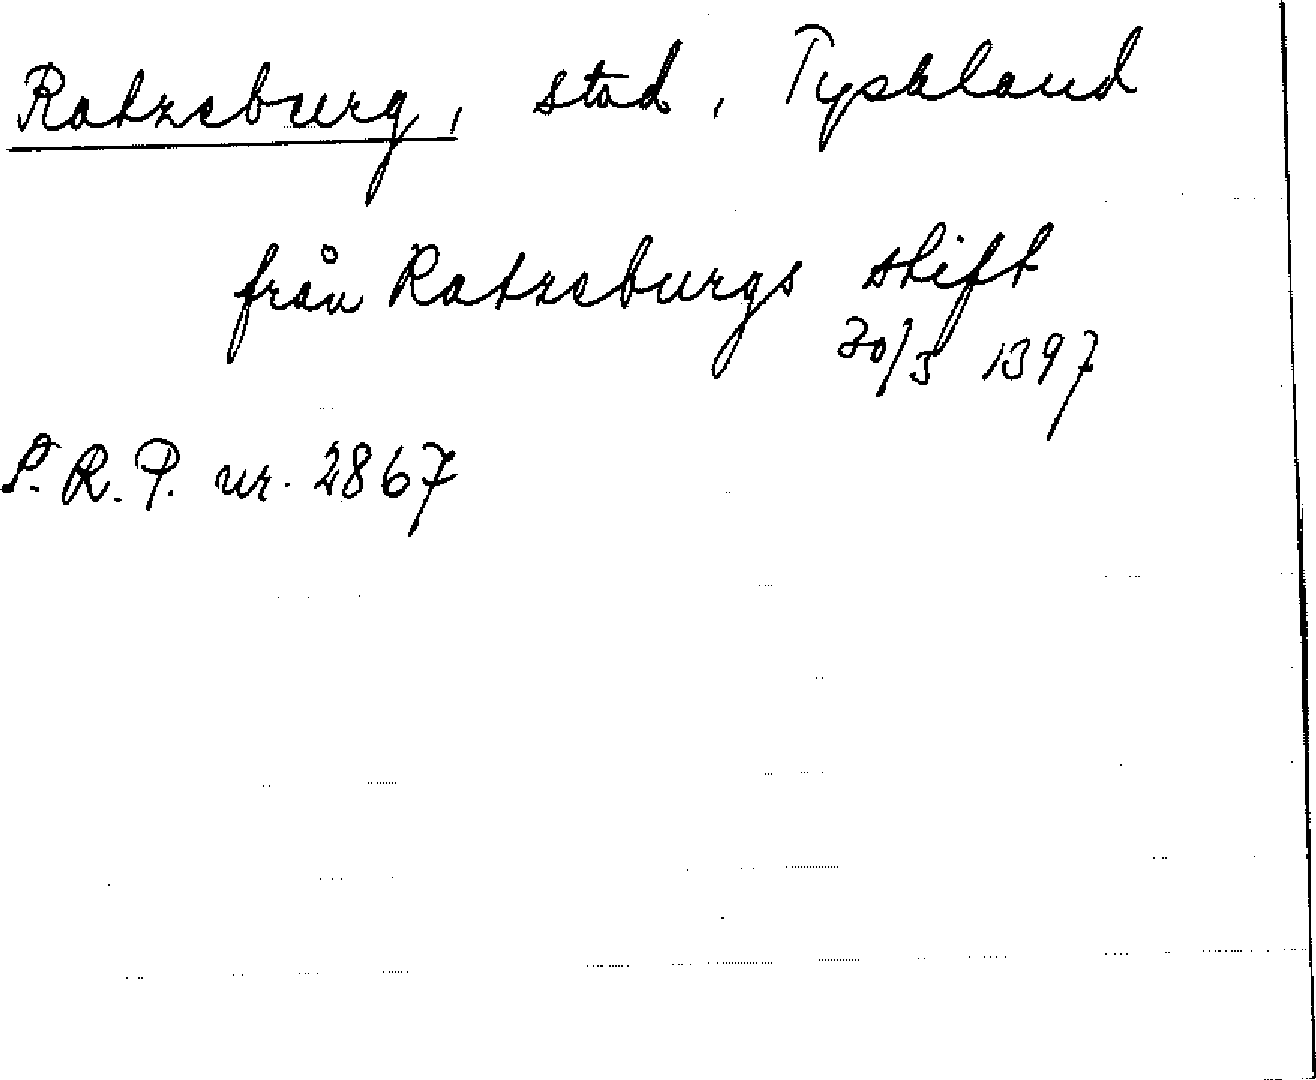 Ratzeburg, stad, Tyskland
från Ratzeburgs stift
30/3 1397
S.R.P. nr. 2867